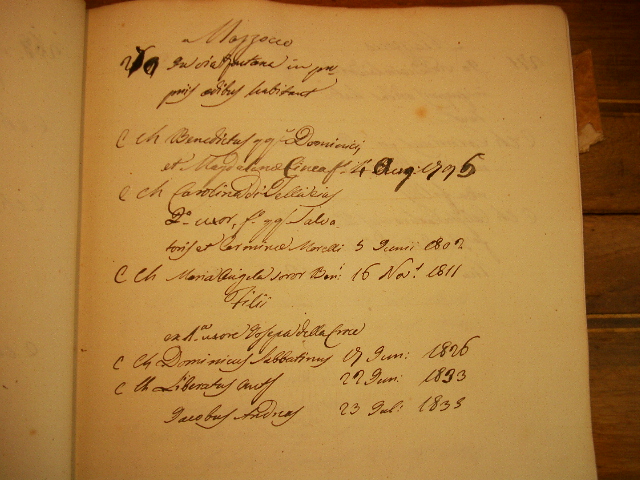 Mazzocco
In via Fontana in pro
priis ædibus habitant
C Ch Benedictus qq.m Dominici,
et Magdalenæ Cinea f. 4 Aug: 1796
C Ch Carolina di
2.a uxor, f.a qq.m Salva
toris et Carminæ Morelli 5 Junii 1802
C Ch Maria Angela soror Ben: 16 Nov. 1811
Filii
ex 1.a uxore Josepha della Croce
C Ch Dominicus Sabbatinus 17 Jun: 1826
C Ch Liberatus 22 Jun: 1833
Jacobus Andreas 23 Jul: 1835